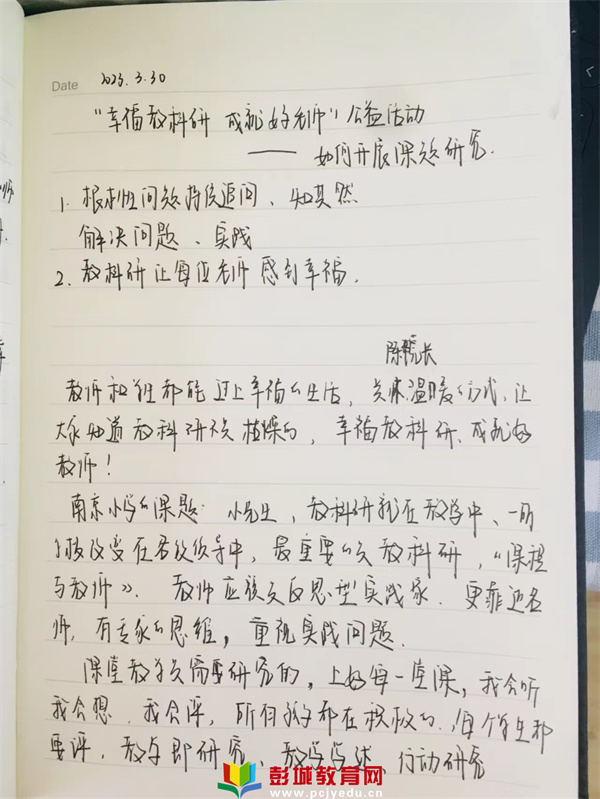 Date 2023.3.30
"幸福教科研 成就好老师"公益活动
—— 如何开展课题研究.
1. 根本性问题持续追问、知其然
解决问题、实践
2. 教科研让每位老师感到幸福.
陈院长
教师和学生都能过上幸福的生活, 关怀温暖的方式, 让
大家知道教科研不是枯燥的, 幸福教科研, 成就好
教师!
南京小学的课题: 小先生, 教科研就在教学中、一所
学校改变在者领导中, 最重要的是教科研, "《课程
与教师》. 教师应该是反思型实践家. 更靠近名
师, 有专家的思维, 重视实践问题.
课堂教学是需要研究的, 上好每一堂课, 我会听
我会想, 我会评, 所有都在积极的, 每个学生都
要评, 教学即研究、教学写述, 行动研究
彭城教育网
www.pcjyedu.cn
师